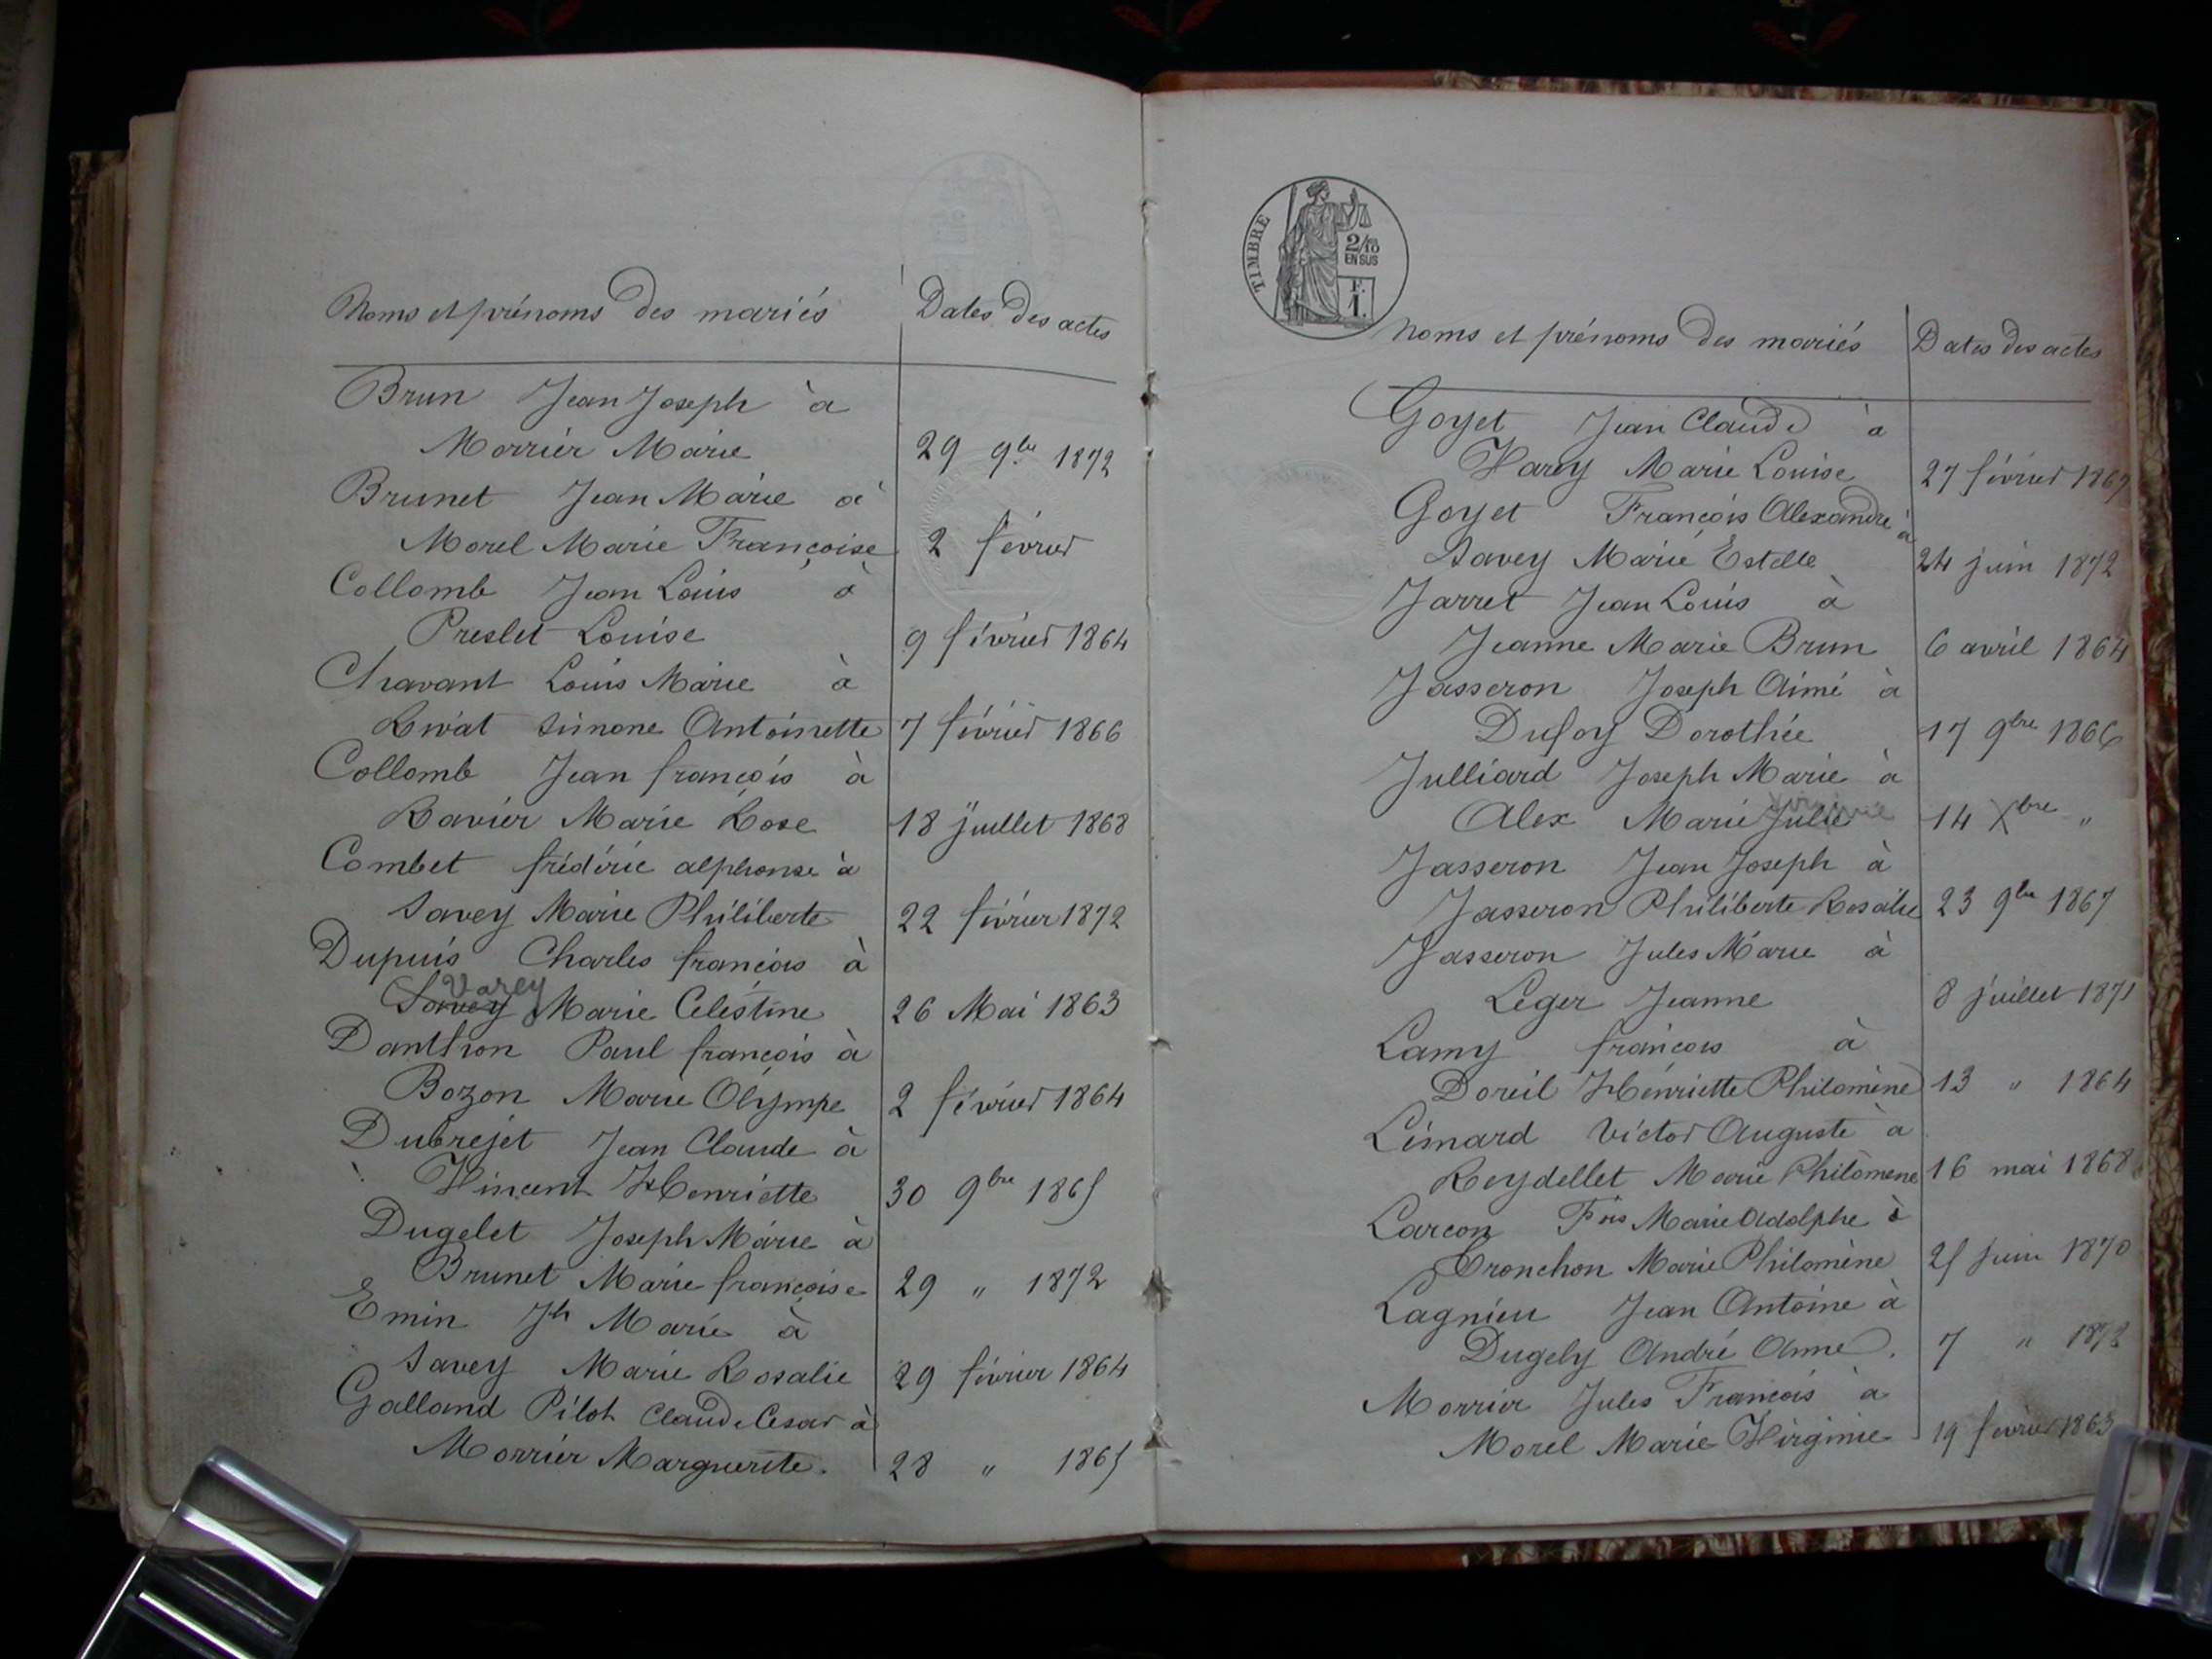 Noms et prénoms des mariés Dates des actes
Brun Jean Joseph à
Morrier Marie 29 9bre 1872
Brunet Jean Marie à
Morel Marie Françoise 2 février
Collomb Jean Louis à
Preslet Louise 9 février 1864
Chavant Louis Marie à
Rivat Simone Antoinette 7 février 1866
Collomb Jean françois à
Ravier Marie Rose 18 juillet 1868
Combet frédéric alphonse à
Savey Marie Philiberte 22 février 1872
Dupuis Charles françois à
Varey
Savey Marie Célestine 26 Mai 1863
Danthon Paul françois à
Bozon Marie Olympe 2 février 1864
Dubrejet Jean Claude à
à Vincent Henriette 30 9bre 1865
Dugelet Joseph Marie à
Brunet Marie françoise 29 " 1872
Emin Jh Marie à
Savey Marie Rosalie 29 février 1864
Galland Pilot Claude Cesar à
Morrier Marguerite. 28 " 1865
TIMBRE
2/10
EN SUS
F.
1.
Noms et prénoms des mariés Dates des actes
Goyet Jean Claude à
Varey Marie Louise 27 février 1867
Goyet François Alexandre à
Savey Marie Estelle 24 juin 1872
Jarret Jean Louis à
Jeanne Marie Brun 6 avril 1864
Jasseron Joseph Aimé à
Dufoy Dorothée 17 9bre 1866
Julliard Joseph Marie à
Virginie
Alex Marie Julie 14 Xbre "
Jasseron Jean Joseph à
Jasseron Philiberte Rosalie 23 9bre 1867
Jasseron Jules Marie à
Léger Jeanne 8 juillet 1871
Lamy françois à
Doreil Henriette Philomène 13 " 1864
Limard Victor Auguste à
Reydellet Marie Philomène 16 mai 1868
Larçon Fois Marie Adolphe à
Cronchon Marie Philomène 25 juin 1870
Lagnieu Jean Antoine à
Dugely André Anne. 7 " 1872
Morrier Jules François à
Morel Marie Virginie 19 février 1863